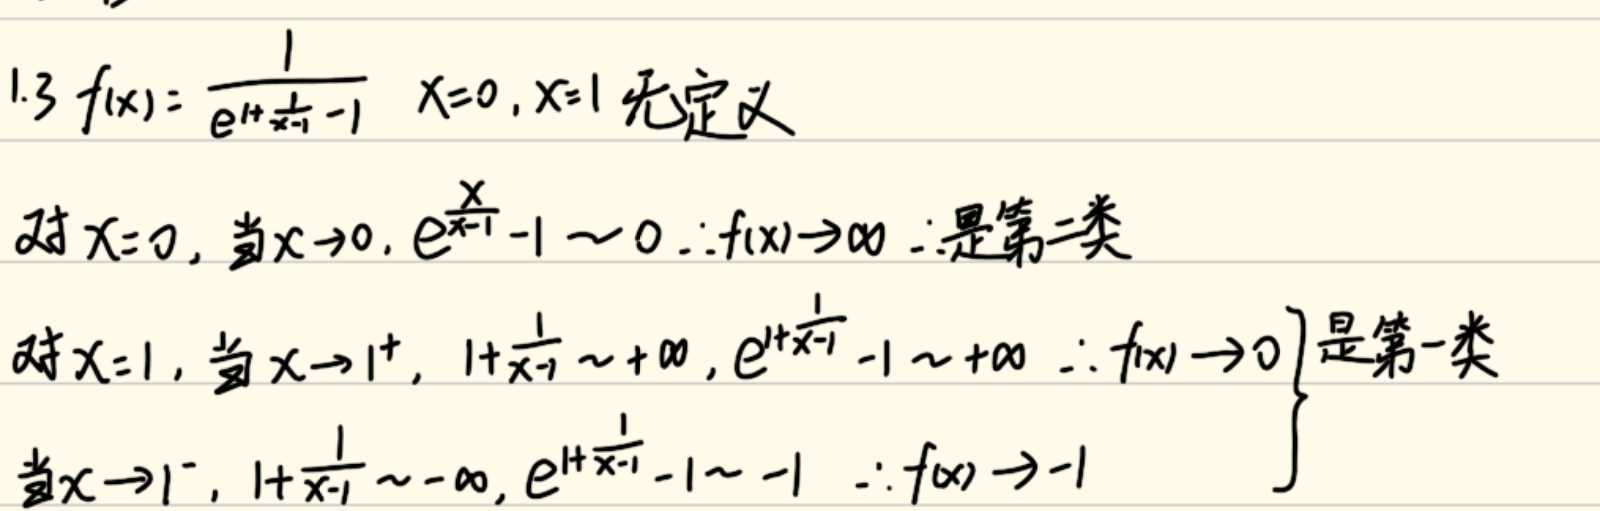 1.3 f(x) = 1/(e^(1+1/(x-1)) - 1) x=0, x=1 无定义
对 x=0, 当x→0, e^(x/(x-1)) - 1 ~ 0 ∴f(x)→∞ ∴是第二类
对x=1, 当 x→1⁺, 1+1/(x-1) ~ +∞, e^(1+1/(x-1)) - 1 ~ +∞ ∴ f(x)→0 } 是第一类
当x→1⁻, 1+1/(x-1) ~ -∞, e^(1+1/(x-1)) - 1 ~ -1 ∴ f(x)→-1